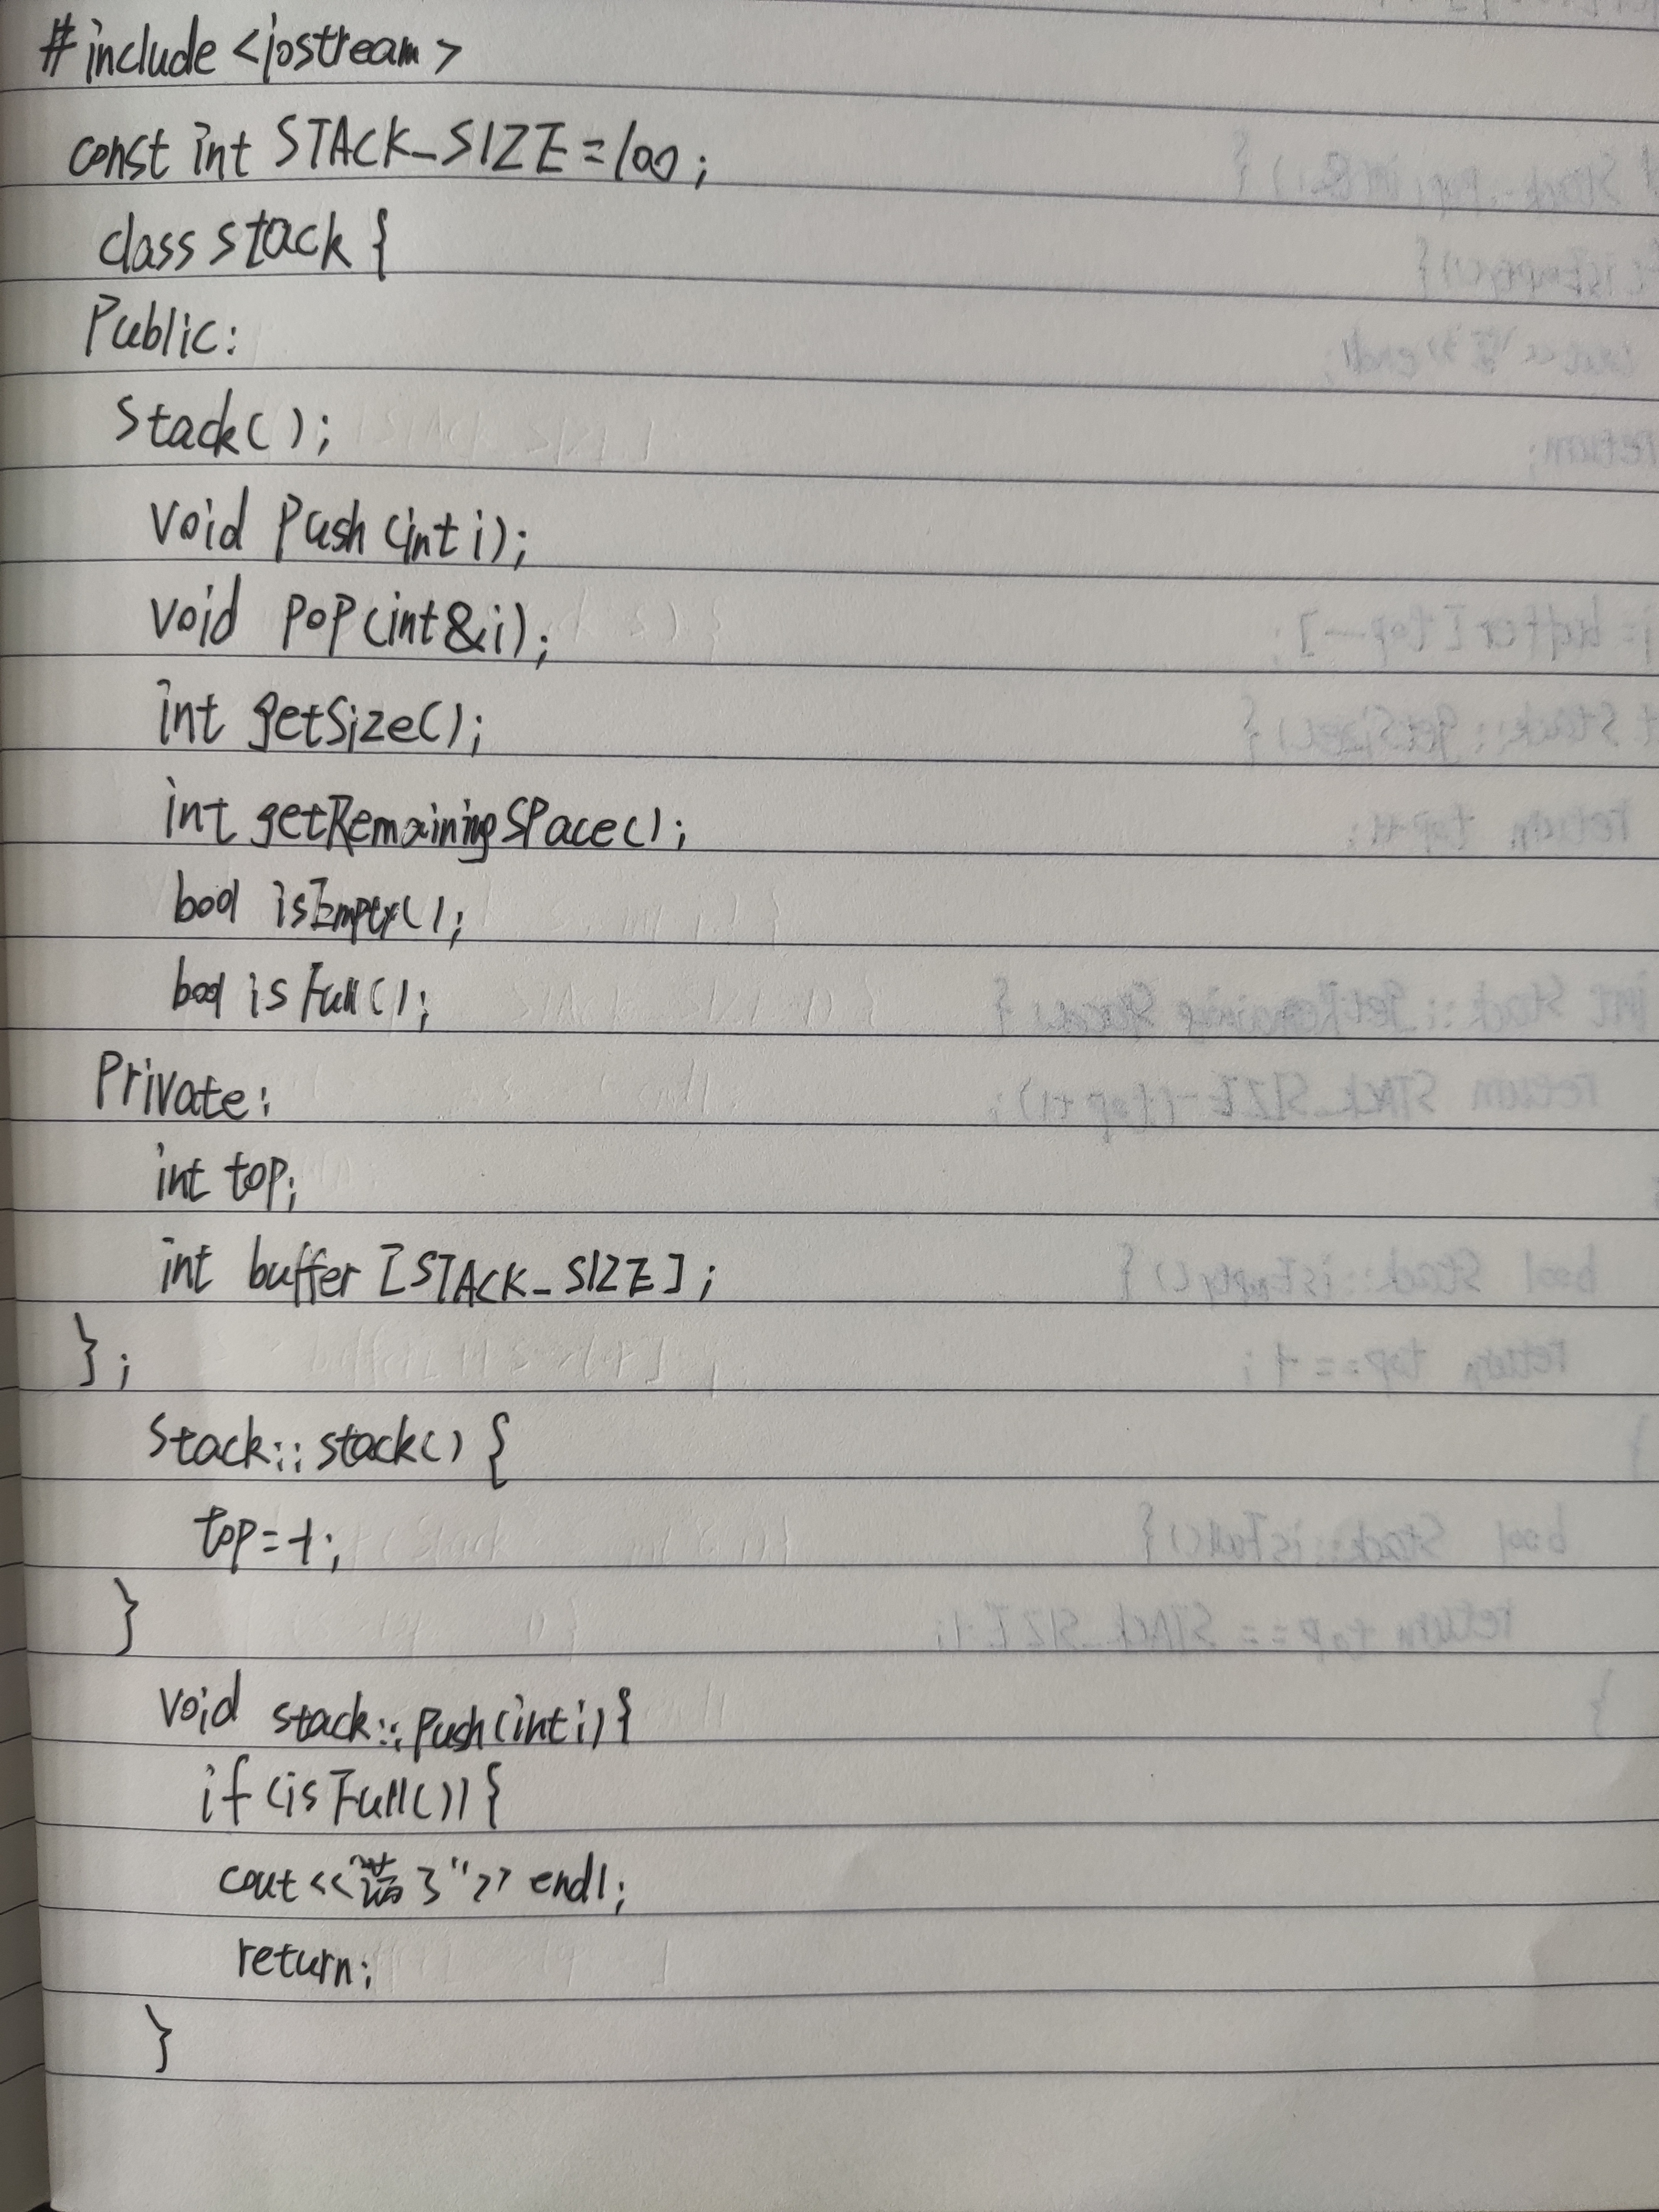 #include <iostream>
const int STACK_SIZE = 100;
class stack {
Public:
stack();
void Push (int i);
void PoP (int & i);
int getSize();
int getRemainingSPace();
bool isEmpty();
bool isFull();
Private:
int top;
int buffer [STACK_SIZE];
};
stack::stack() {
top = -1;
}
void stack::Push(int i) {
if (isFull()) {
cout << "满了" >> endl;
return;
}